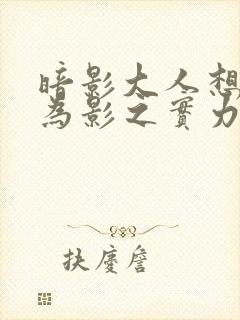 暗影大人想
为影之實力
扶慶詹